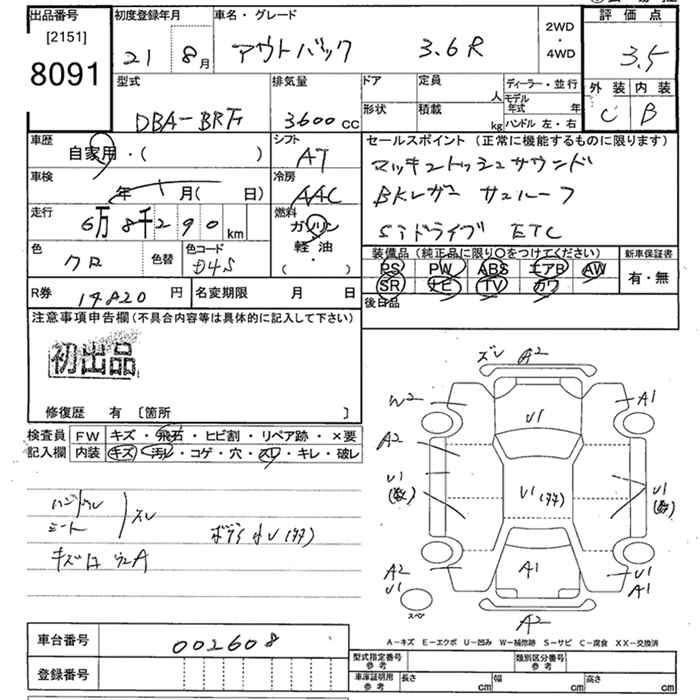 出品番号 初度登録年月 車名・グレード 2WD・4WD 評価点
[2151]
8091 21 8月 アウトバック 3.6R 3.5
型式 排気量 ドア 定員 人 ディーラー・並行 外装 内装
形状 積載 kg モデル年式 年 C B
DBA-BR 3600cc ハンドル 左・右
車歴 シフト セールスポイント(正常に機能するものに限ります)
自家用・( ) AT マッキントッシュサウンド
車検 冷房
年 月( 日) AAC BKレザー サンルーフ
走行 燃料
6万8千290km ガソリン SIドライブ ETC
色 色替 色コード 軽油・( ) 装備品(純正品に限り○をつけてください) 新車保証書
クロ D4S PS PW ABS エアB AW 有・無
R券 19820円 名変期限 月 日 SR ナビ TV カワ
注意事項申告欄(不具合内容等は具体的に記入して下さい) 後日品
初出品
修復歴 有 [箇所 ]
検査員記入欄 FW キズ・飛石・ヒビ割・リペア跡・×要
内装 キズ・汚レ・コゲ・穴・スレ・キレ・破レ
ハンドル
シート スレ
ボディ 小U(タタ)
ズレ A2
W2 A1
A2 U1
U1(数) U1(タタ) U1(数)
A2 U1 A1 U1 A1
スペア A2
A-キズ E-エクボ U-凹み W-補修跡 S-サビ C-腐食 XX-交換済
車台番号 002608
登録番号
型式指定番号参考 類別区分番号参考
車庫証明用参考 長さ cm 幅 cm 高さ cm